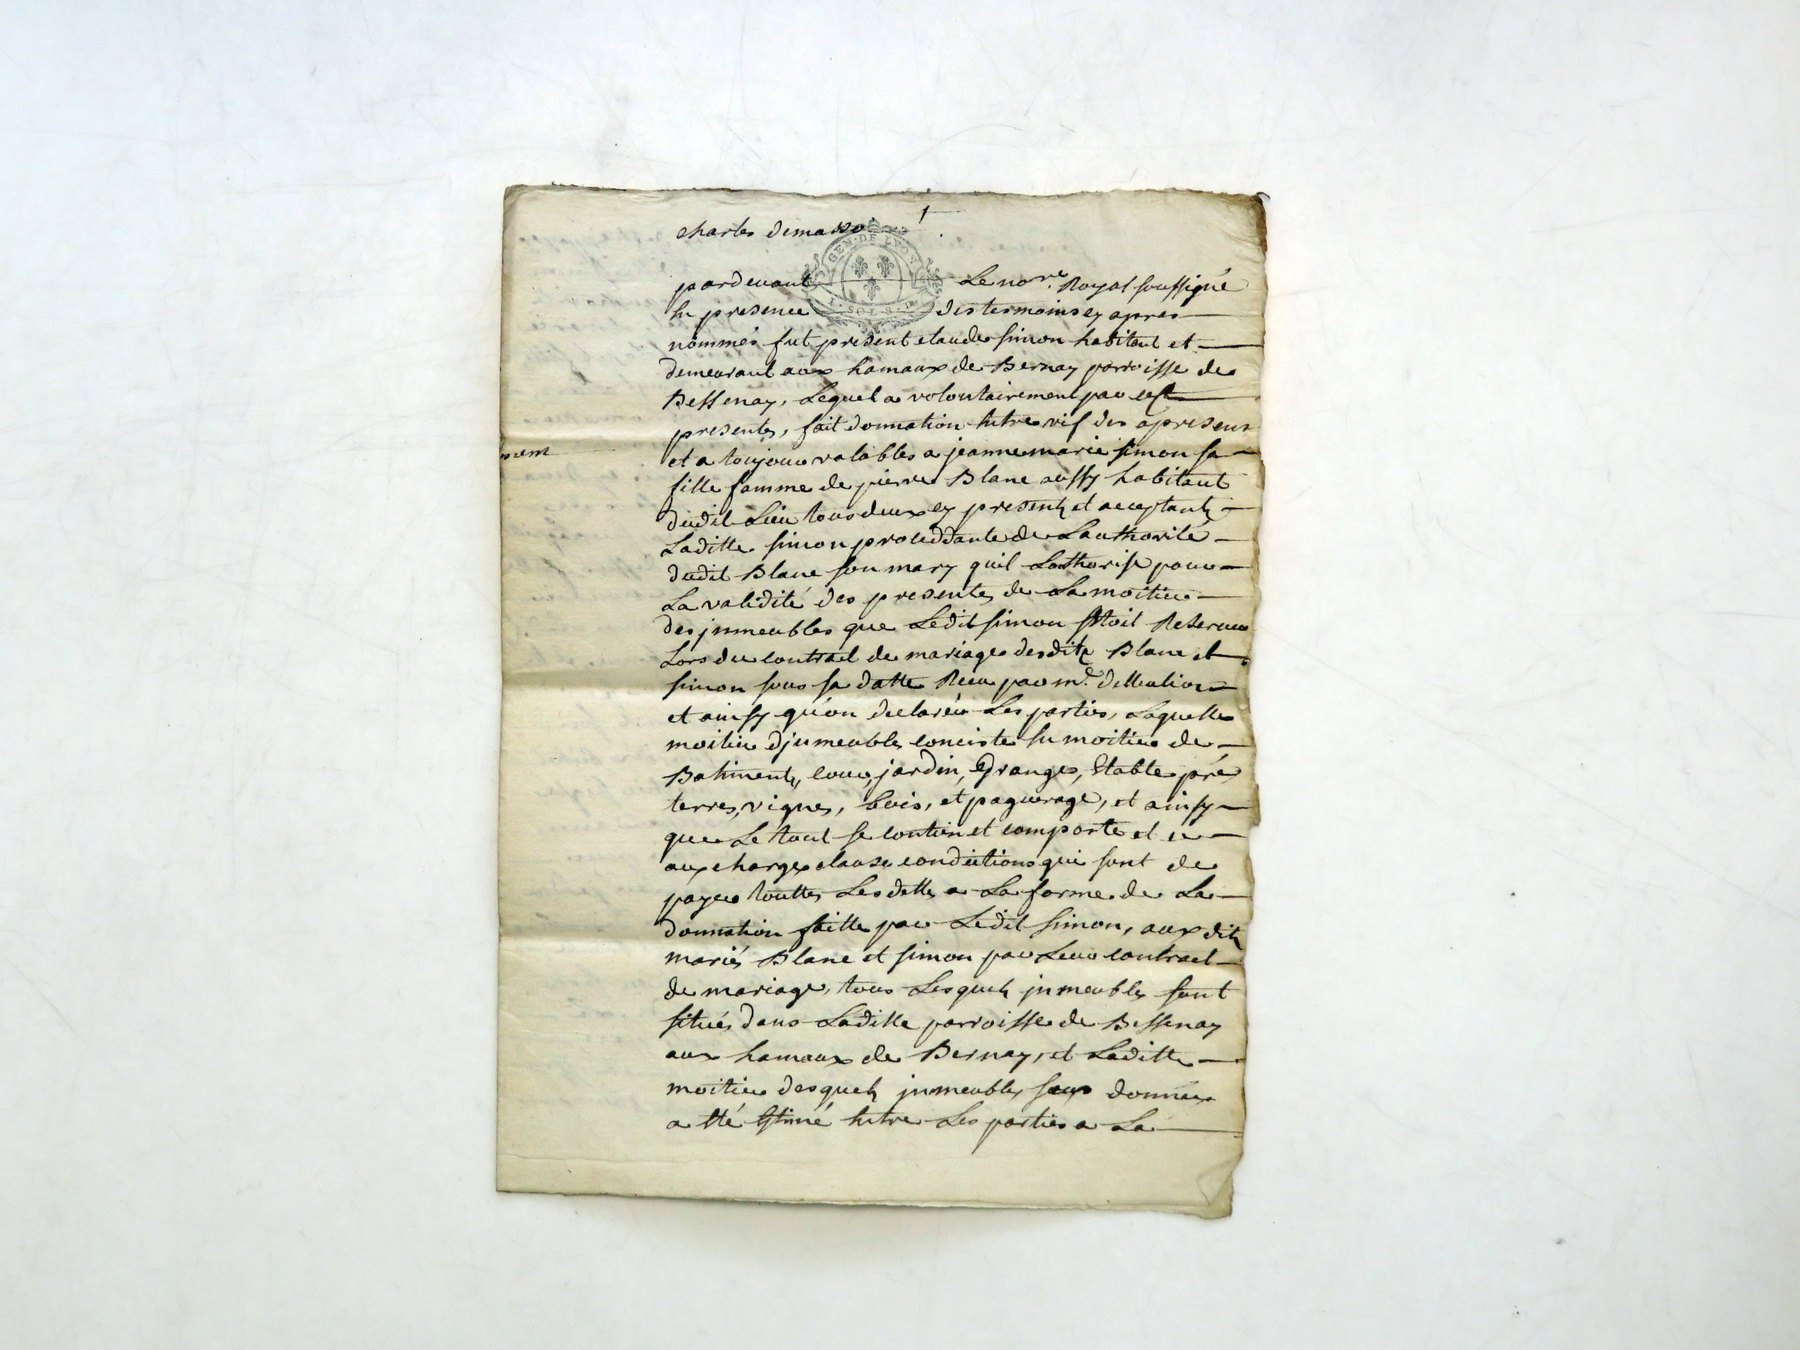 charles demasso 1
GEN. DE LYON
SOLS
pardevant Le no.re Royal soussigné
En presence des termoins cy apres
nommés fut présent claude simon habitant et
demeurant aux hamaux de Bernay parroisse de
Bessenay, Lequel a volontairement par ces
presentes, fait donnation Entre vif des apresent
et a toujour valables a jeanne marie simon sa
fille famme de pierre Blanc aussy habitant
dudit Lieu tous deux cy presents et acceptants
Laditte simon proceddante de Lauthorité
dudit Blanc son mary quil Lauthorise pour
La validité des presentes de La moitiée
des jnmeubles que Ledit simon sétoit Reservée
Lors du contract de mariage desdits Blanc et
simon sous sa datte Reçu par m.e
et ainsy qu'on declarée Les parties, Laquelle
moitiée djnmeubles conciste En moitiée de
Batiments, cour, jardin, Grange, Etable, pré
terres, vignes, bois, et paquerage, et ainsy
que Le tout se contien et comporte et ce
aux charges clause condictions qui sont de
payer touttes Les dettes a La forme de La
donnation faitte par Ledit simon, aux dits
mariés Blanc et simon par Leur contract
de mariage, tous Lesquels jnmeubles sont
situés dans Laditte parroisse de Bessenay
aux hamaux de Bernay, et Laditte
moitiée desquels jnmeubles donnée
a Eté Estimé Entre Les parties a La